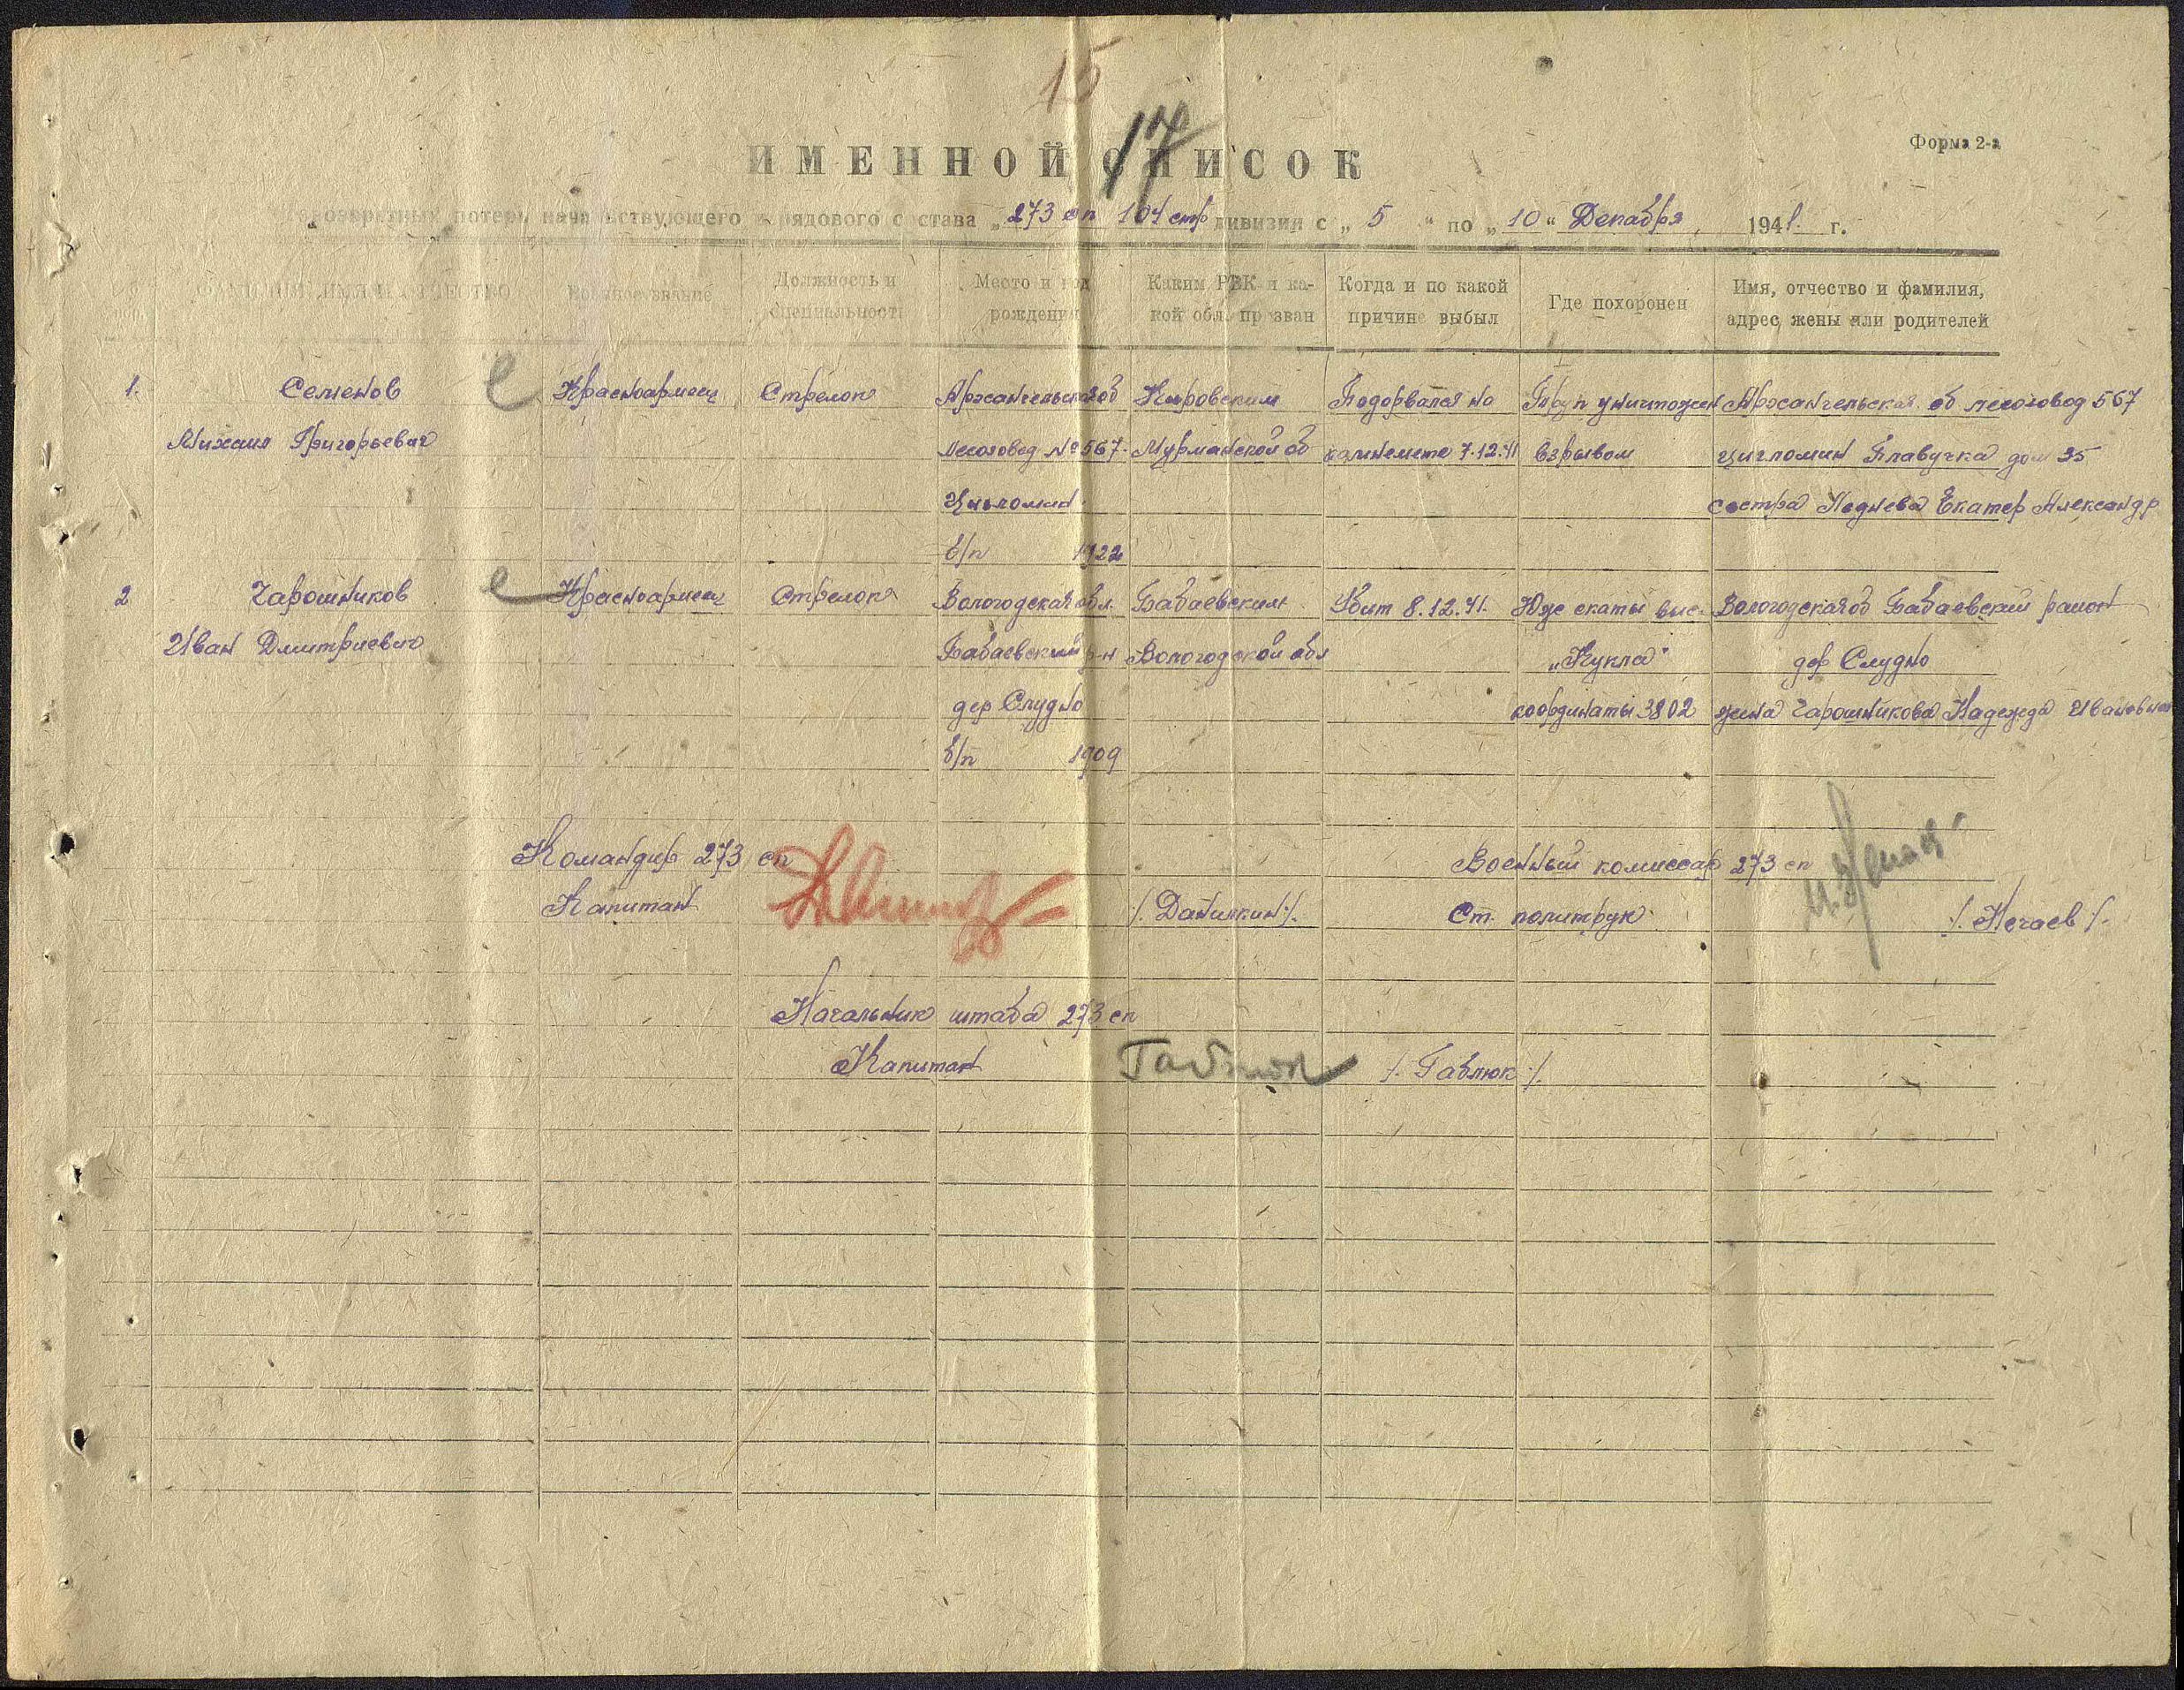 15
17
Форма 2-а
ИМЕННОЙ СПИСОК
безвозвратных потерь начальствующего и рядового состава „273 сп 104 стр дивизии с „ 5 “ по „ 10 “ Декабря 1941 г.
ФАМИЛИЯ, ИМЯ И ОТЧЕСТВО
Военное звание
Должность и специальность
Место и год рождения
Каким РВК и какой обл. призван
Когда и по какой причине выбыл
Где похоронен
Имя, отчество и фамилия, адрес жены или родителей
1. Семенов Красноармеец Стрелок Архангельская об Кировским Подорвался на Труп уничтожен Архангельская об лесозавод 567
Михаил Григорьевич Лесозавод № 567. Мурманской об 7.12.41 взрывом цигломин Плавучка дом 25
Цигломин сестра Екатер Александр
б/п 1922
2 Чарошников Красноармеец Стрелок Вологодская обл. Бабаевским Убит 8.12.41. Юж скаты выс. Вологодская об Бабаевский район
Иван Дмитриевич Бабаевский р-н Вологодской обл „Кукла“ дер Слудно
дер Слудно координаты 3802 жена Чарошникова Надежда Ивановна
б/п 1909
Командир 273 сп Военный комиссар 273 сп
Капитан /. Данилкин ./. Ст. политрук. ./. Нечаев /.
Начальник штаба 273 сп
Капитан Габлюк /. Габлюк ./.